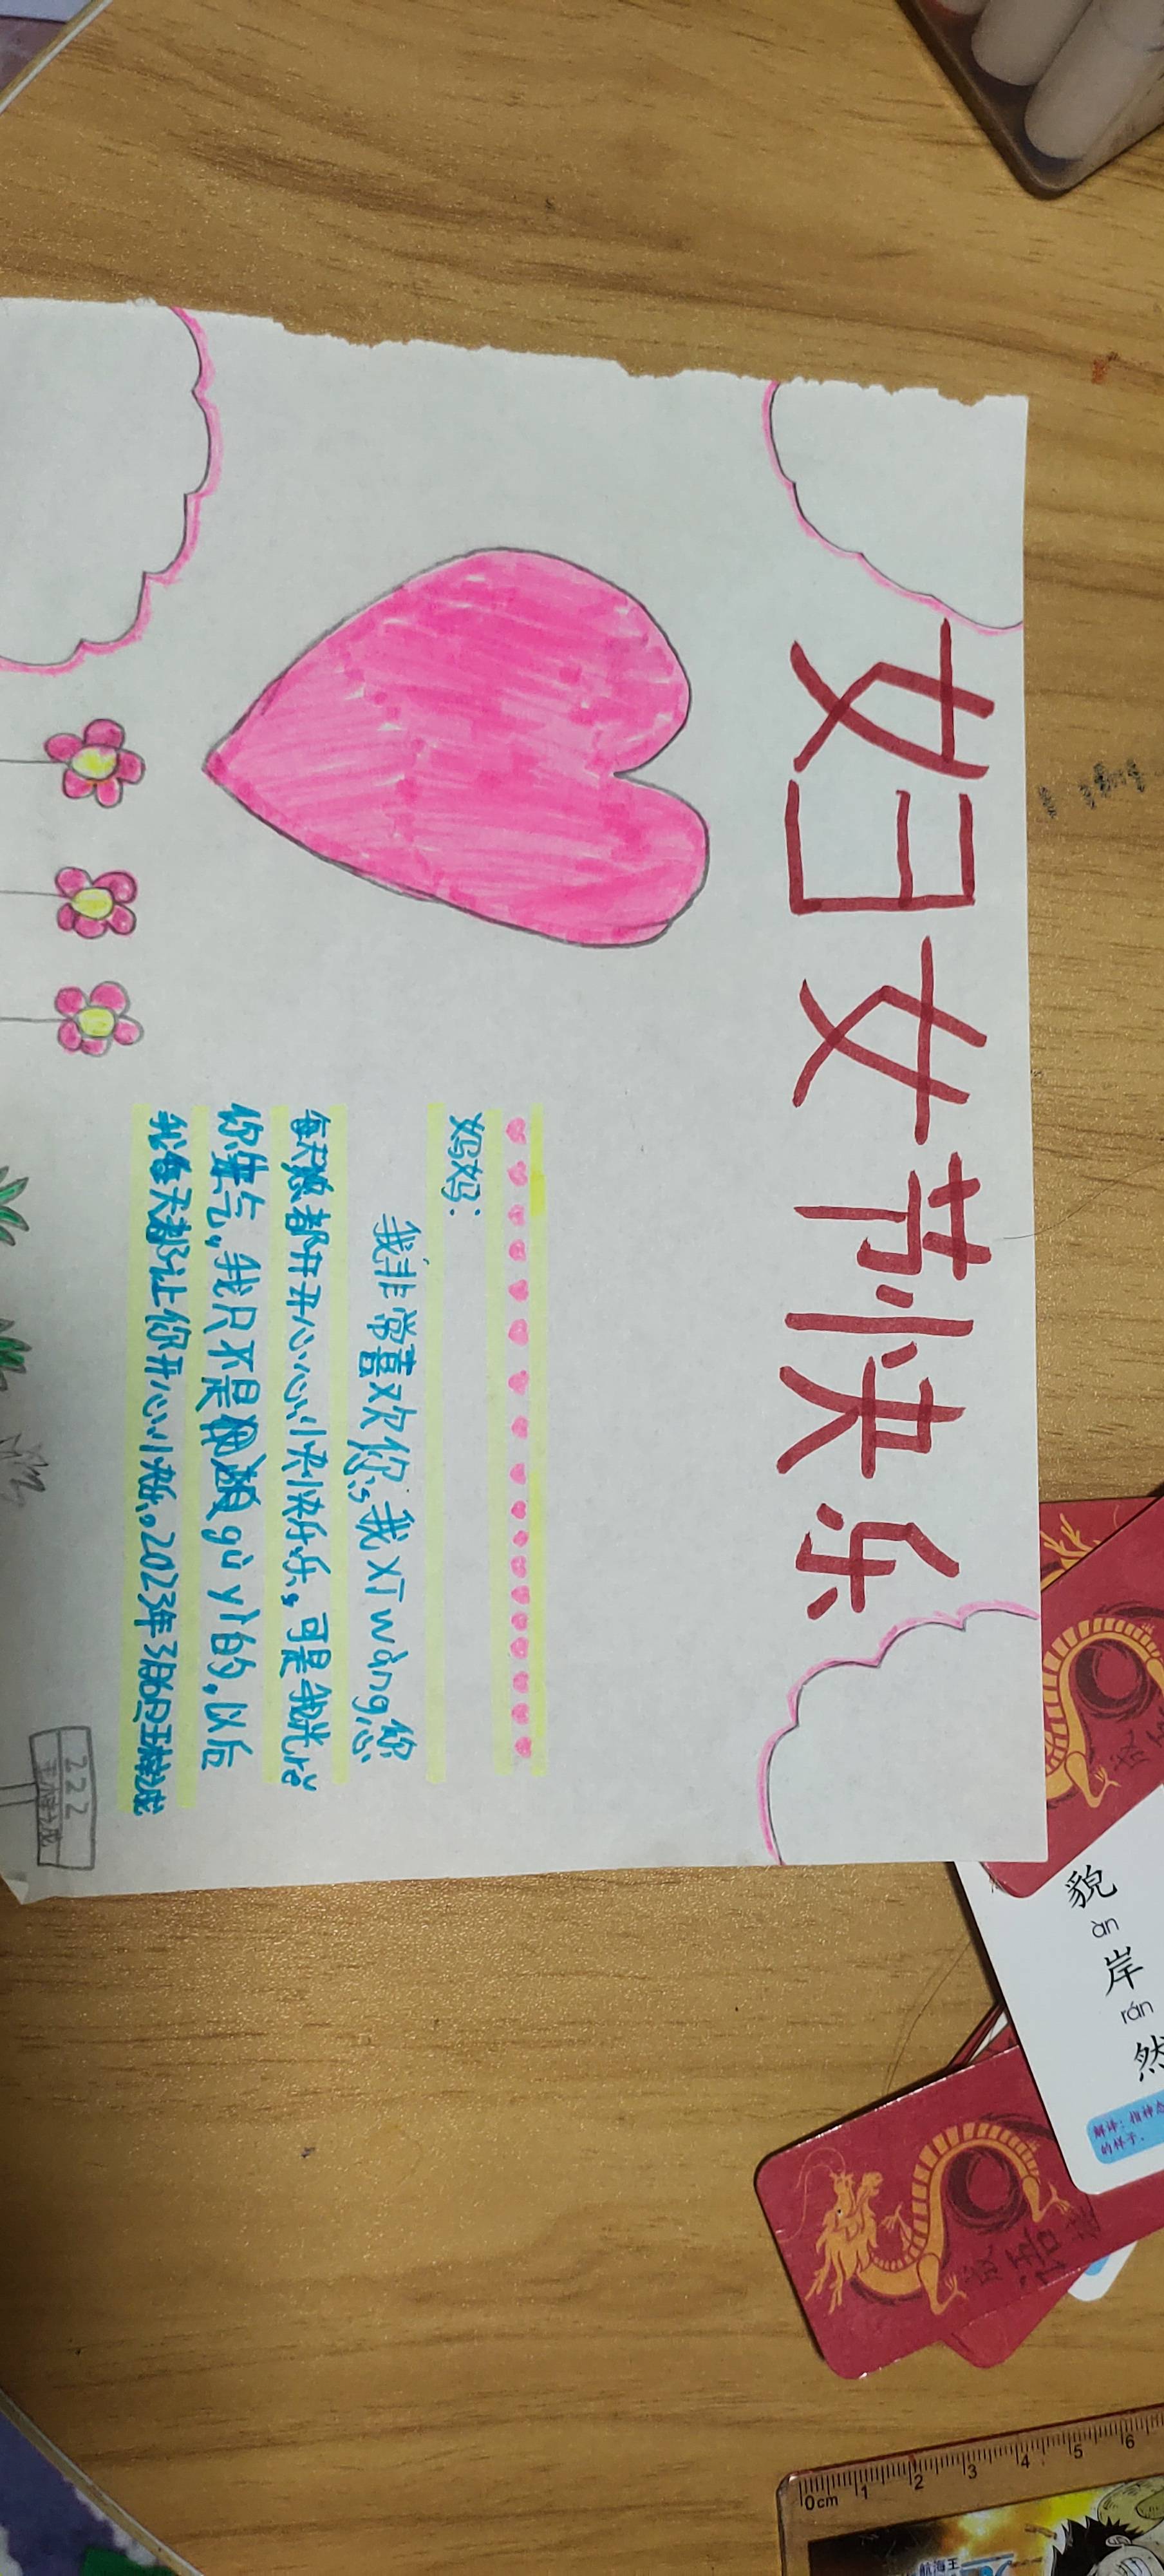 妇女节快乐
妈妈:
我非常喜欢你,我xīwàng您
每天都开开心心,快快乐乐,可是我光rě
你生气,我只不是gù yì的,以后
我每天都让你开心,快乐。2023年3月6日王梓
222
貌
àn
岸
rán
然
的样子.
0cm 1 2 3 4 5 6
航海王